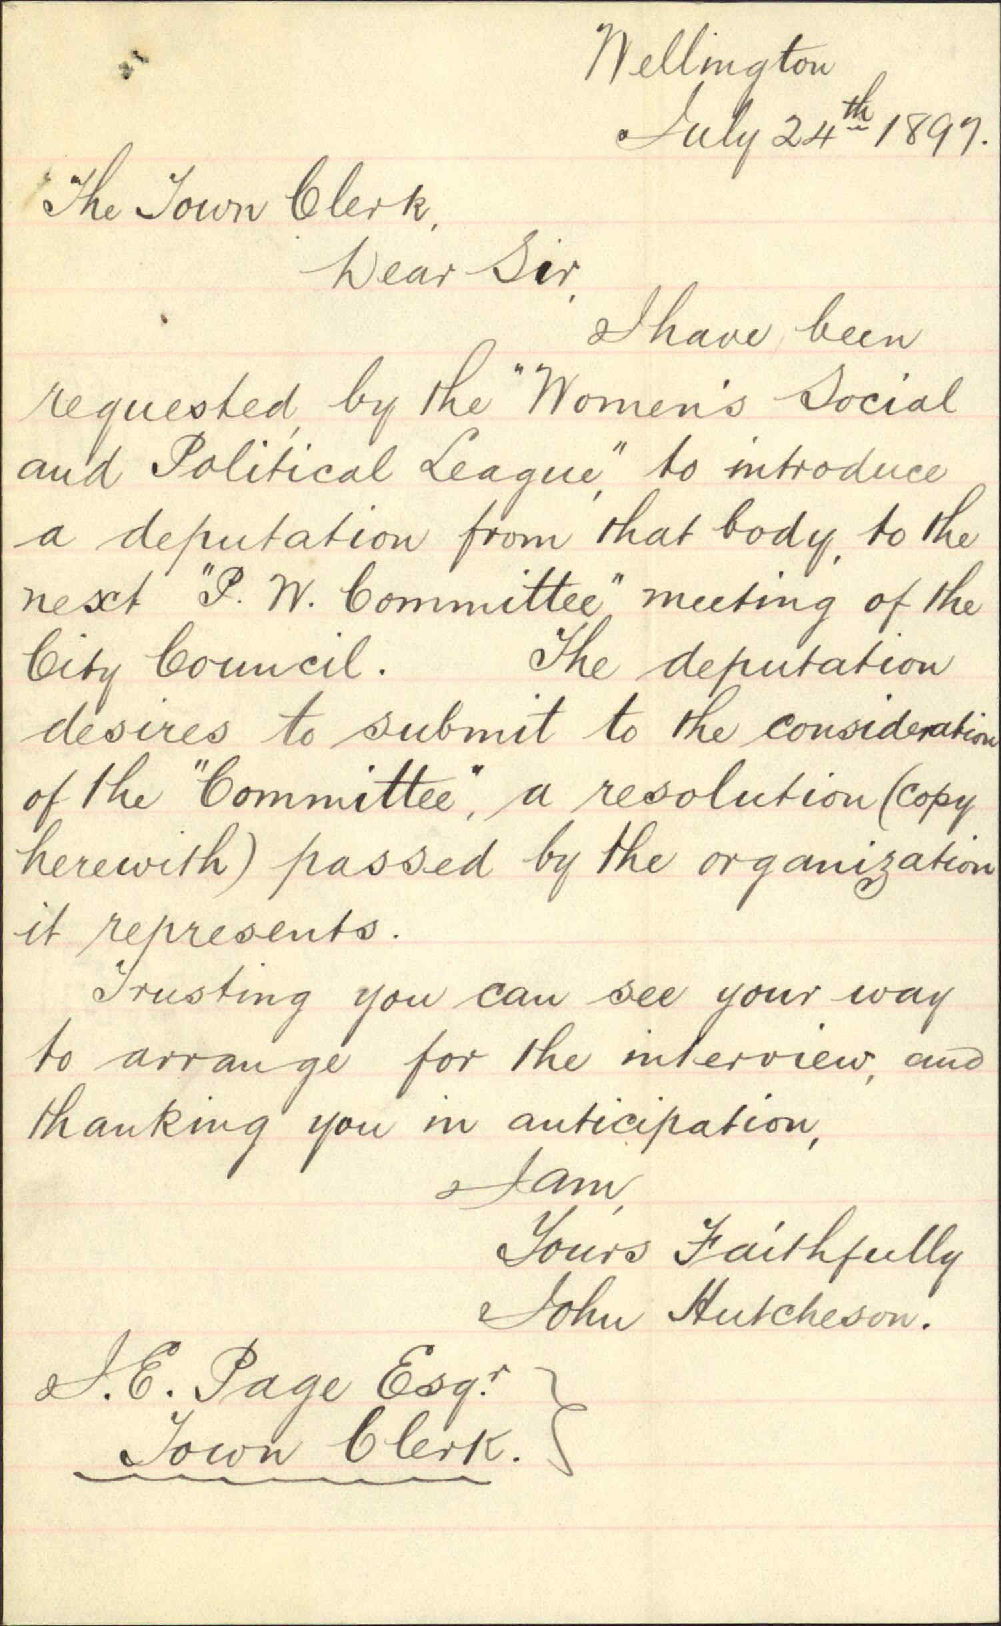 Wellington
July 24th 1897.
The Town Clerk,
Dear Sir,
I have been
requested, by the "Women's Social
and Political League," to introduce
a deputation from that body, to the
next "P. W. Committee" meeting of the
City Council. The deputation
desires to submit to the consideration
of the "Committee", a resolution (copy
herewith) passed by the organization
it represents.
Trusting you can see your way
to arrange for the interview, and
thanking you in anticipation,
I am,
Yours Faithfully
John Hutcheson.
J. E. Page Esqr.
Town Clerk.